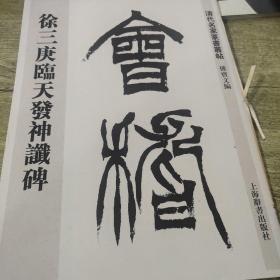 清代名家篆書叢帖
孫寶文編
上海辭書出版社
會稽
徐三庚臨天發神讖碑